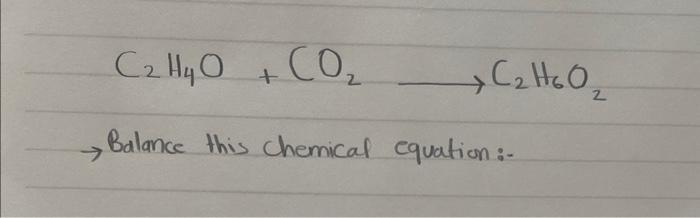 C₂H₄O + CO₂ ⟶ C₂H₆O₂
→ Balance this chemical equation:-